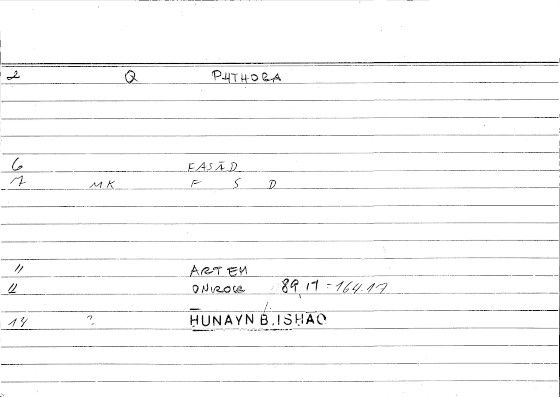 2 Q PHTHORA
6 FASĀD
7 MK F S D
11 ARTEM
12 ONIROCR 89,17 - 164.17
14 ? HUNAYN B. ISHAQ